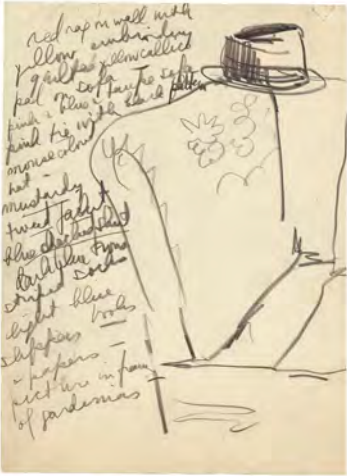 red rag on wall with
yellow embroidery
yellow calico
pad on sofa
pink & blue
pink tie with black pattern
mouse colour
hat –
mustardy
tweed jacket
blue checked shirt
dark blue
striped socks
light blue
slippers books
& papers –
picture in frame
of gardenias